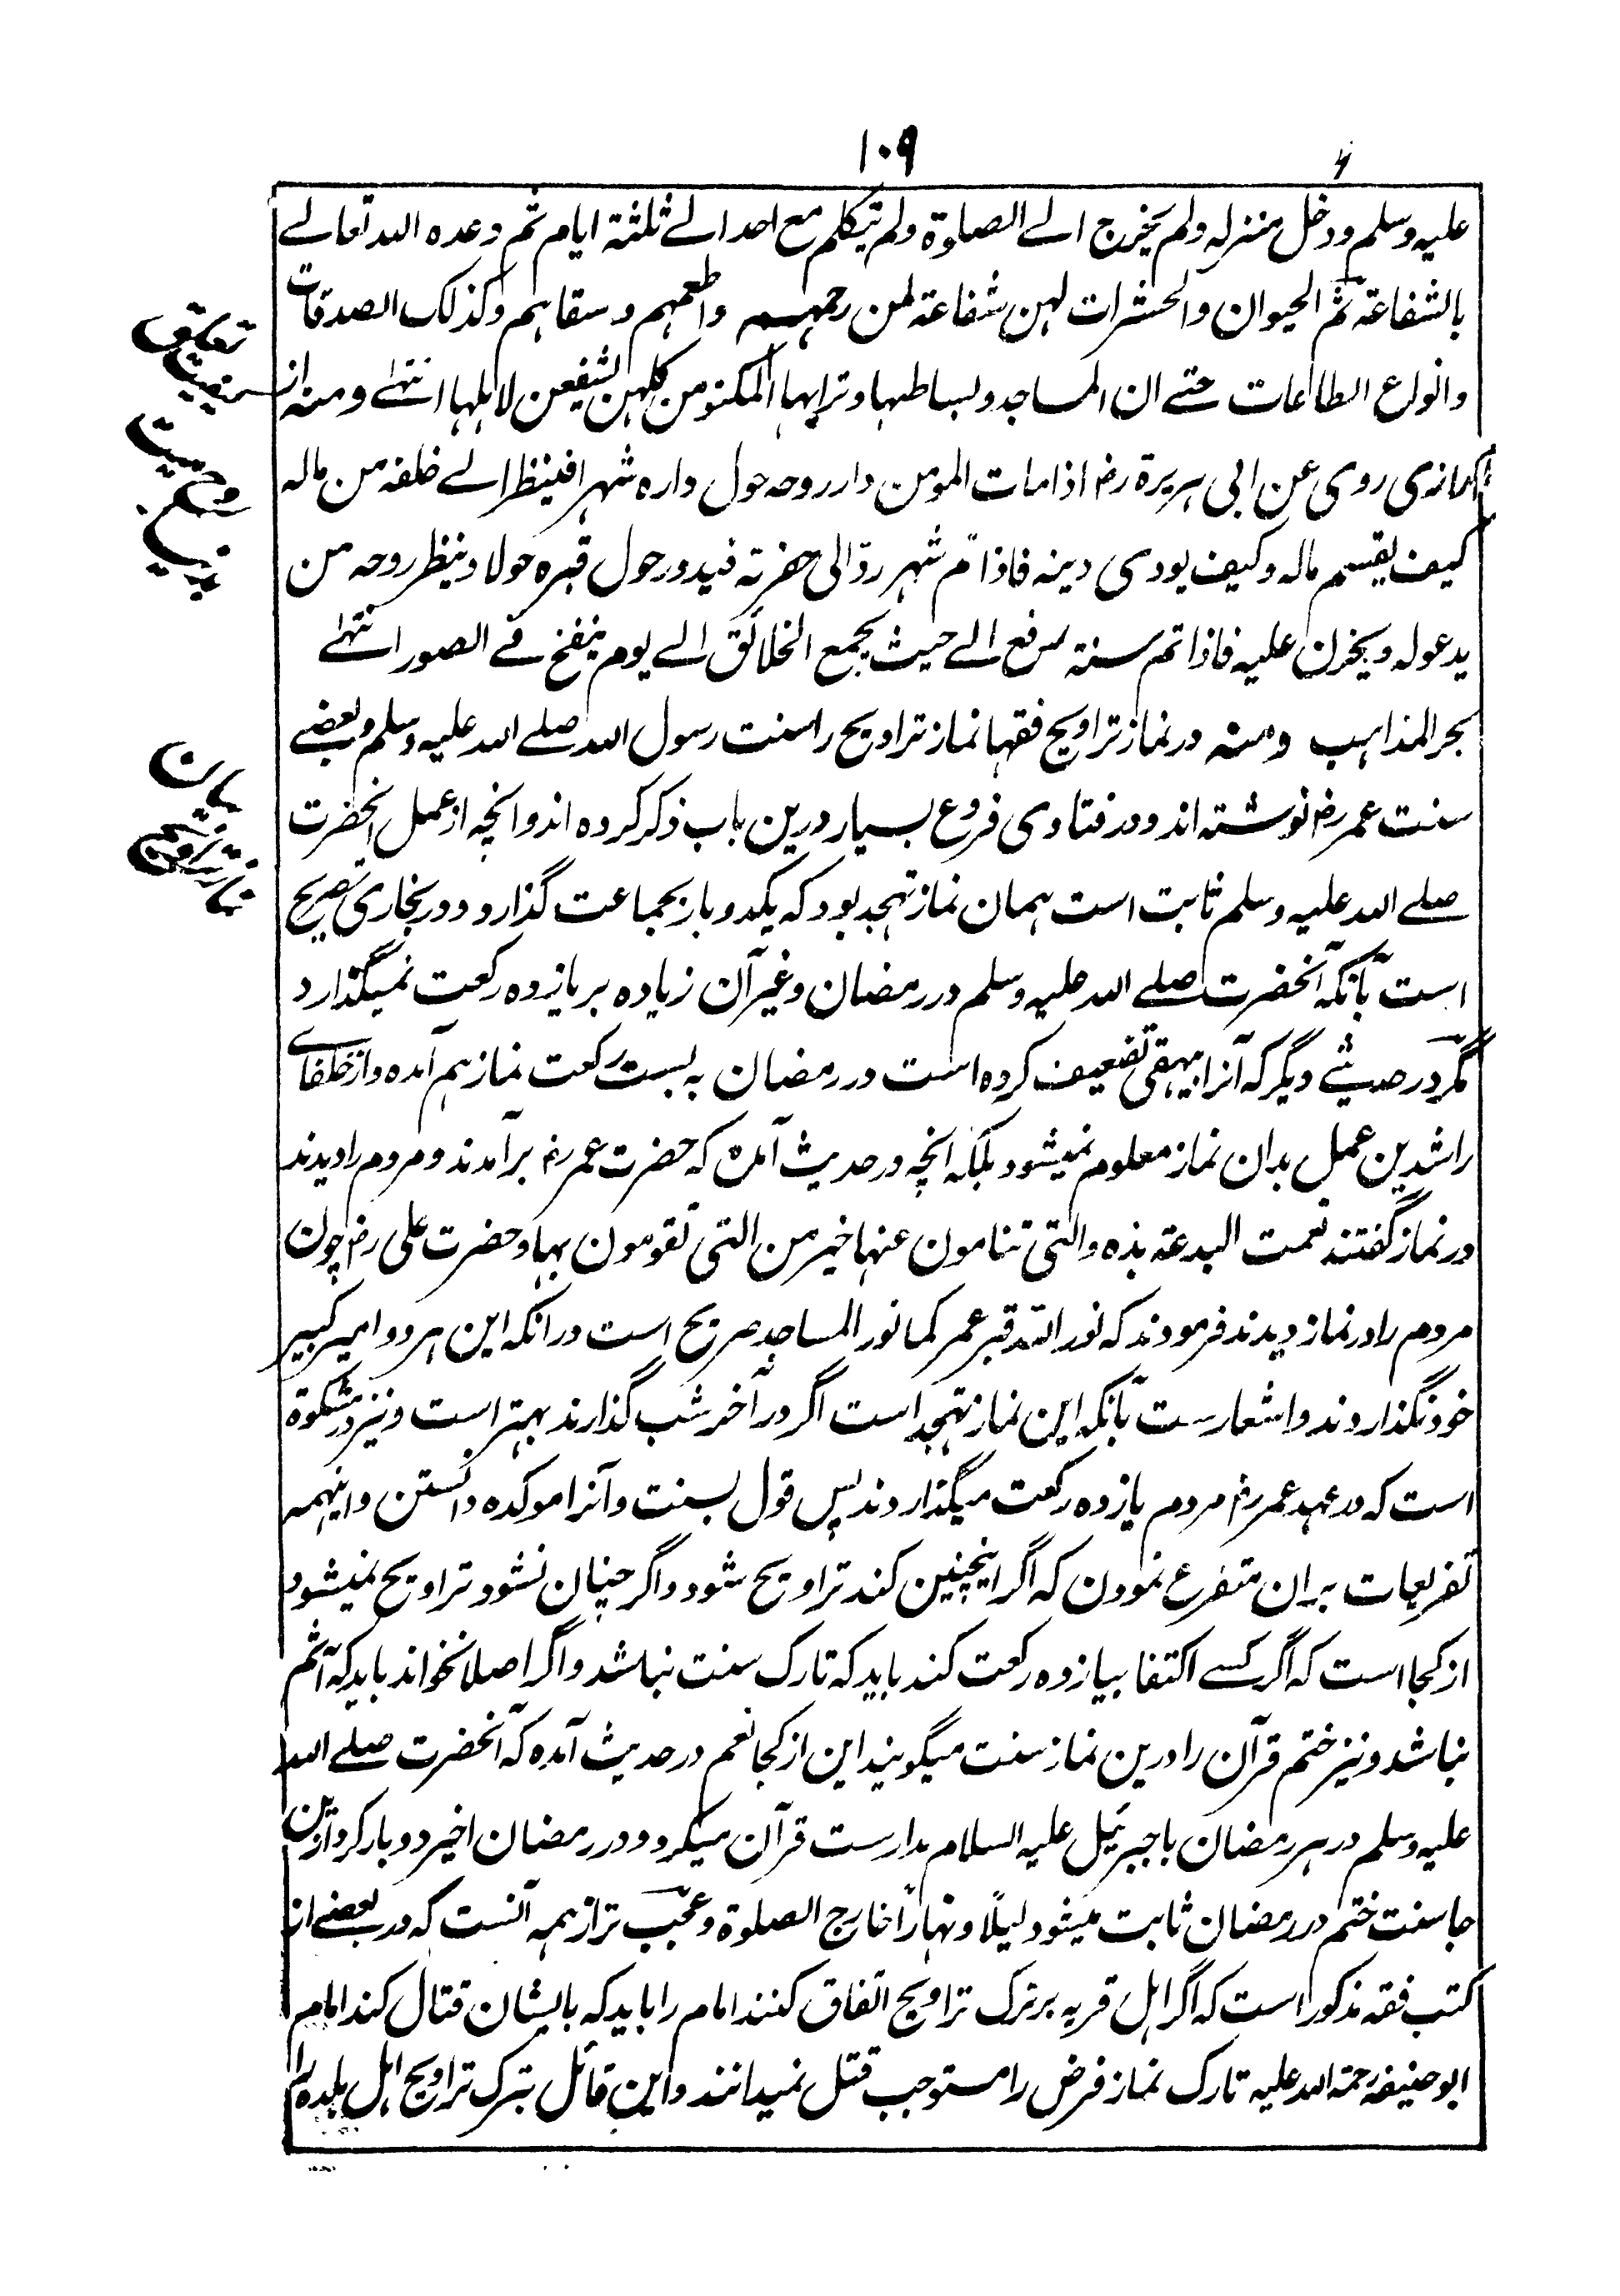 ۱۰۹
علیه وسلم ودخل منزله ولم یخرج الے الصلوة ولم یتکلم مع احد الے ثلثة ایام ثم وعده الله تعالے
بالشفاعة ثم الحیوان والحشرات لهن شفاعة لمن رحمهم واطعمهم وسقاهم وکذلک الصدقات
وانواع الطاعات حتے ان المساجد وبساطها وترابها المکنوس کلهن لشفیعن لاهلها انتهے ومنه از
روی عن ابی هریرة رض اذا مات المومن دار روحه حول داره شهرا فینظر الے خلفه من ماله
کیف یقسم ماله وکیف یودی دینه فاذا تم شهر ردّ الی حفرته فیدور حول قبره حولا وینظر روحه من
یدعو له ویحزن علیه فاذا تم سنة رفع الے حیث یجمع الخلائق الے یوم ینفخ فے الصور انتهے
بحر المذاهب ومنه در نماز تراویح فقها نماز تراویح را سنت رسول الله صلے الله علیه وسلم وبعضے
سنت عمر رض نوشته اند ودر فتاوی فروع بسیار درین باب ذکر کرده اند وانچه از عمل آنحضرت
صلے الله علیه وسلم ثابت است همان نماز تهجد بود که یکدو بار بجماعت گذارد ودر بخاری تصریح
است بآنکه آنحضرت صلے الله علیه وسلم در رمضان وغیر آن زیاده بر یازده رکعت نمیگذارد
مگر در حدیثے دیگر که آنرا بیهقی تضعیف کرده است در رمضان به بست رکعت نماز هم آمده واز خلفاے
راشدین عمل بدان نماز معلوم نمیشود بلکه انچه در حدیث آمده که حضرت عمر رض برآمدند ومردم را دیدند
در نماز گفتند نعمت البدعة هذه والتی تنامون عنها خیر من التی تقومون بها وحضرت علی رض چون
مردم را در نماز دیدند فرمودند که نور الله قبر عمر کما نور المساجد صریح است در انکه این هر دو امیر کبیر
خود نگذاردند واشعار ست بآنکه این نماز تهجد است اگر در آخر شب گذارند بهتر است ونیز در مشکوة
است که در عهد عمر رض مردم یازده رکعت میگذاردند پس قول بسنت وآنرا موکده دانستن واینهمه
تفریعات بران متفرع نمودن که اگر اینچنین کند تراویح شود واگر چنان نشود تراویح نمیشود
از کجا است که اگر کسے اکتفا بیازده رکعت کند باید که تارک سنت نباشد واگر اصلا نخواند باید که آثم
نباشد ونیز ختم قرآن را درین نماز سنت میگویند این از کجا نعم در حدیث آمده که آنحضرت صلے الله
علیه وسلم در هر رمضان با جبرئیل علیه السلام مدارست قرآن میکرد ودر رمضان اخیر دو بار کرد ازین
جا سنت ختم در رمضان ثابت میشود لیلاً ونهاراً خارج الصلوة وعجب تر از همه آنست که در بعضے از
کتب فقه مذکور است که اگر اهل قریه بر ترک تراویح اتفاق کنند امام را باید که بایشان قتال کند امام
ابو حنیفه رحمة الله علیه تارک نماز فرض را مستوجب قتل نمیدانند واین قائل بترک تراویح اهل بلده را
بیان
نماز تراویح